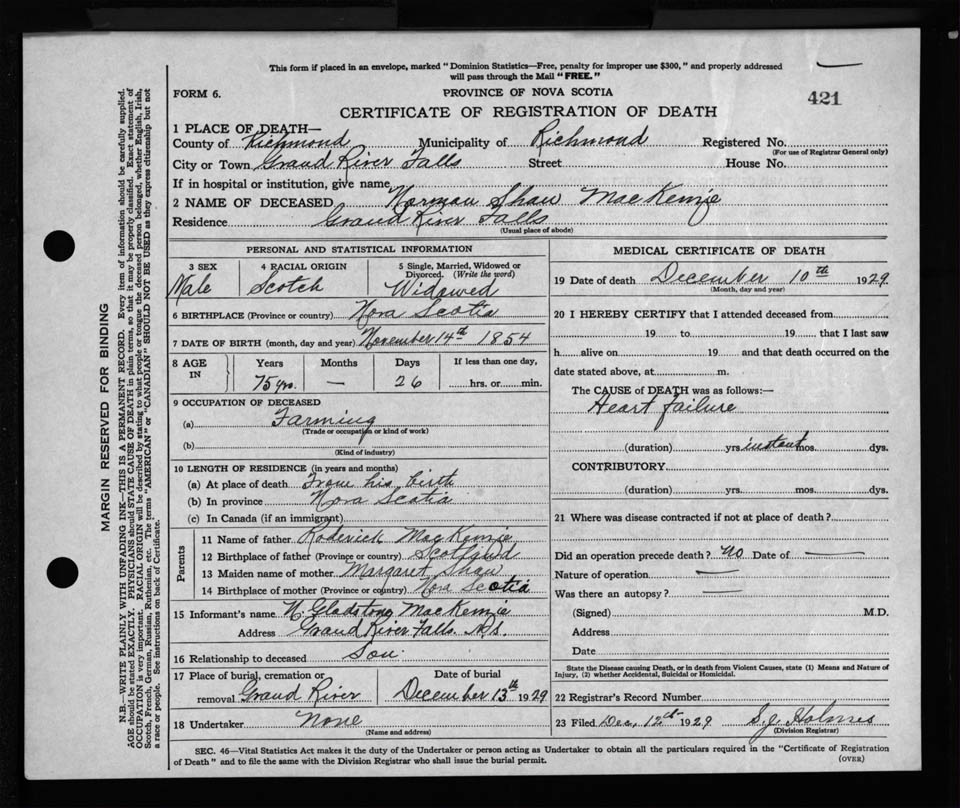 This form if placed in an envelope, marked "Dominion Statistics—Free, penalty for improper use $300," and properly addressed
will pass through the Mail "FREE."
FORM 6.
PROVINCE OF NOVA SCOTIA
421
CERTIFICATE OF REGISTRATION OF DEATH
1 PLACE OF DEATH—
County of Richmond Municipality of Richmond Registered No.
(For use of Registrar General only)
City or Town Grand River Falls Street House No.
If in hospital or institution, give name
2 NAME OF DECEASED Norman Shaw MacKenzie
Residence Grand River Falls
(Usual place of abode)
PERSONAL AND STATISTICAL INFORMATION
3 SEX 4 RACIAL ORIGIN 5 Single, Married, Widowed or
Divorced. (Write the word)
Male Scotch Widowed
6 BIRTHPLACE (Province or country) Nova Scotia
7 DATE OF BIRTH (month, day and year) November 14th 1854
8 AGE IN Years Months Days If less than one day,
75 yrs. — 26 hrs. or min.
9 OCCUPATION OF DECEASED
(a) Farming
(Trade or occupation or kind of work)
(b)
(Kind of industry)
10 LENGTH OF RESIDENCE (in years and months)
(a) At place of death From his birth
(b) In province Nova Scotia
(c) In Canada (if an immigrant)
Parents
11 Name of father Roderick MacKenzie
12 Birthplace of father (Province or country) Scotland
13 Maiden name of mother Margaret Shaw
14 Birthplace of mother (Province or country) Nova Scotia
15 Informant's name N. Gladstone MacKenzie
Address Grand River Falls. N.S.
16 Relationship to deceased Son
17 Place of burial, cremation or Date of burial
removal Grand River December 13th 1929
18 Undertaker None
(Name and address)
MEDICAL CERTIFICATE OF DEATH
19 Date of death December 10th 1929
(Month, day and year)
20 I HEREBY CERTIFY that I attended deceased from
19 to 19 that I last saw
h alive on 19 and that death occurred on the
date stated above, at m.
The CAUSE of DEATH was as follows:—
Heart failure
(duration) yrs. instant mos. dys.
CONTRIBUTORY
(duration) yrs. mos. dys.
21 Where was disease contracted if not at place of death?
Did an operation precede death? No Date of —
Nature of operation —
Was there an autopsy? —
(Signed) M.D.
Address
Date
State the Disease causing Death, or in death from Violent Causes, state (1) Means and Nature of
Injury, (2) whether Accidental, Suicidal or Homicidal.
22 Registrar's Record Number
23 Filed Dec. 12th 1929 S.J. Holmes
(Division Registrar)
SEC. 46—Vital Statistics Act makes it the duty of the Undertaker or person acting as Undertaker to obtain all the particulars required in the "Certificate of Registration
of Death" and to file the same with the Division Registrar who shall issue the burial permit.
(OVER)
MARGIN RESERVED FOR BINDING
N.B.—WRITE PLAINLY WITH UNFADING INK—THIS IS A PERMANENT RECORD. Every item of information should be carefully supplied.
AGE should be stated EXACTLY. PHYSICIANS should STATE CAUSE OF DEATH in plain terms, so that it may be properly classified. Exact statement of
OCCUPATION is very important. RACIAL ORIGIN will be described by stating to what people or tongue the deceased person belonged, whether English, Irish,
Scotch, French, German, Russian, Ruthenian, etc. The terms "AMERICAN" or "CANADIAN" SHOULD NOT BE USED as they express citizenship but not
a race or people. See instructions on back of Certificate.